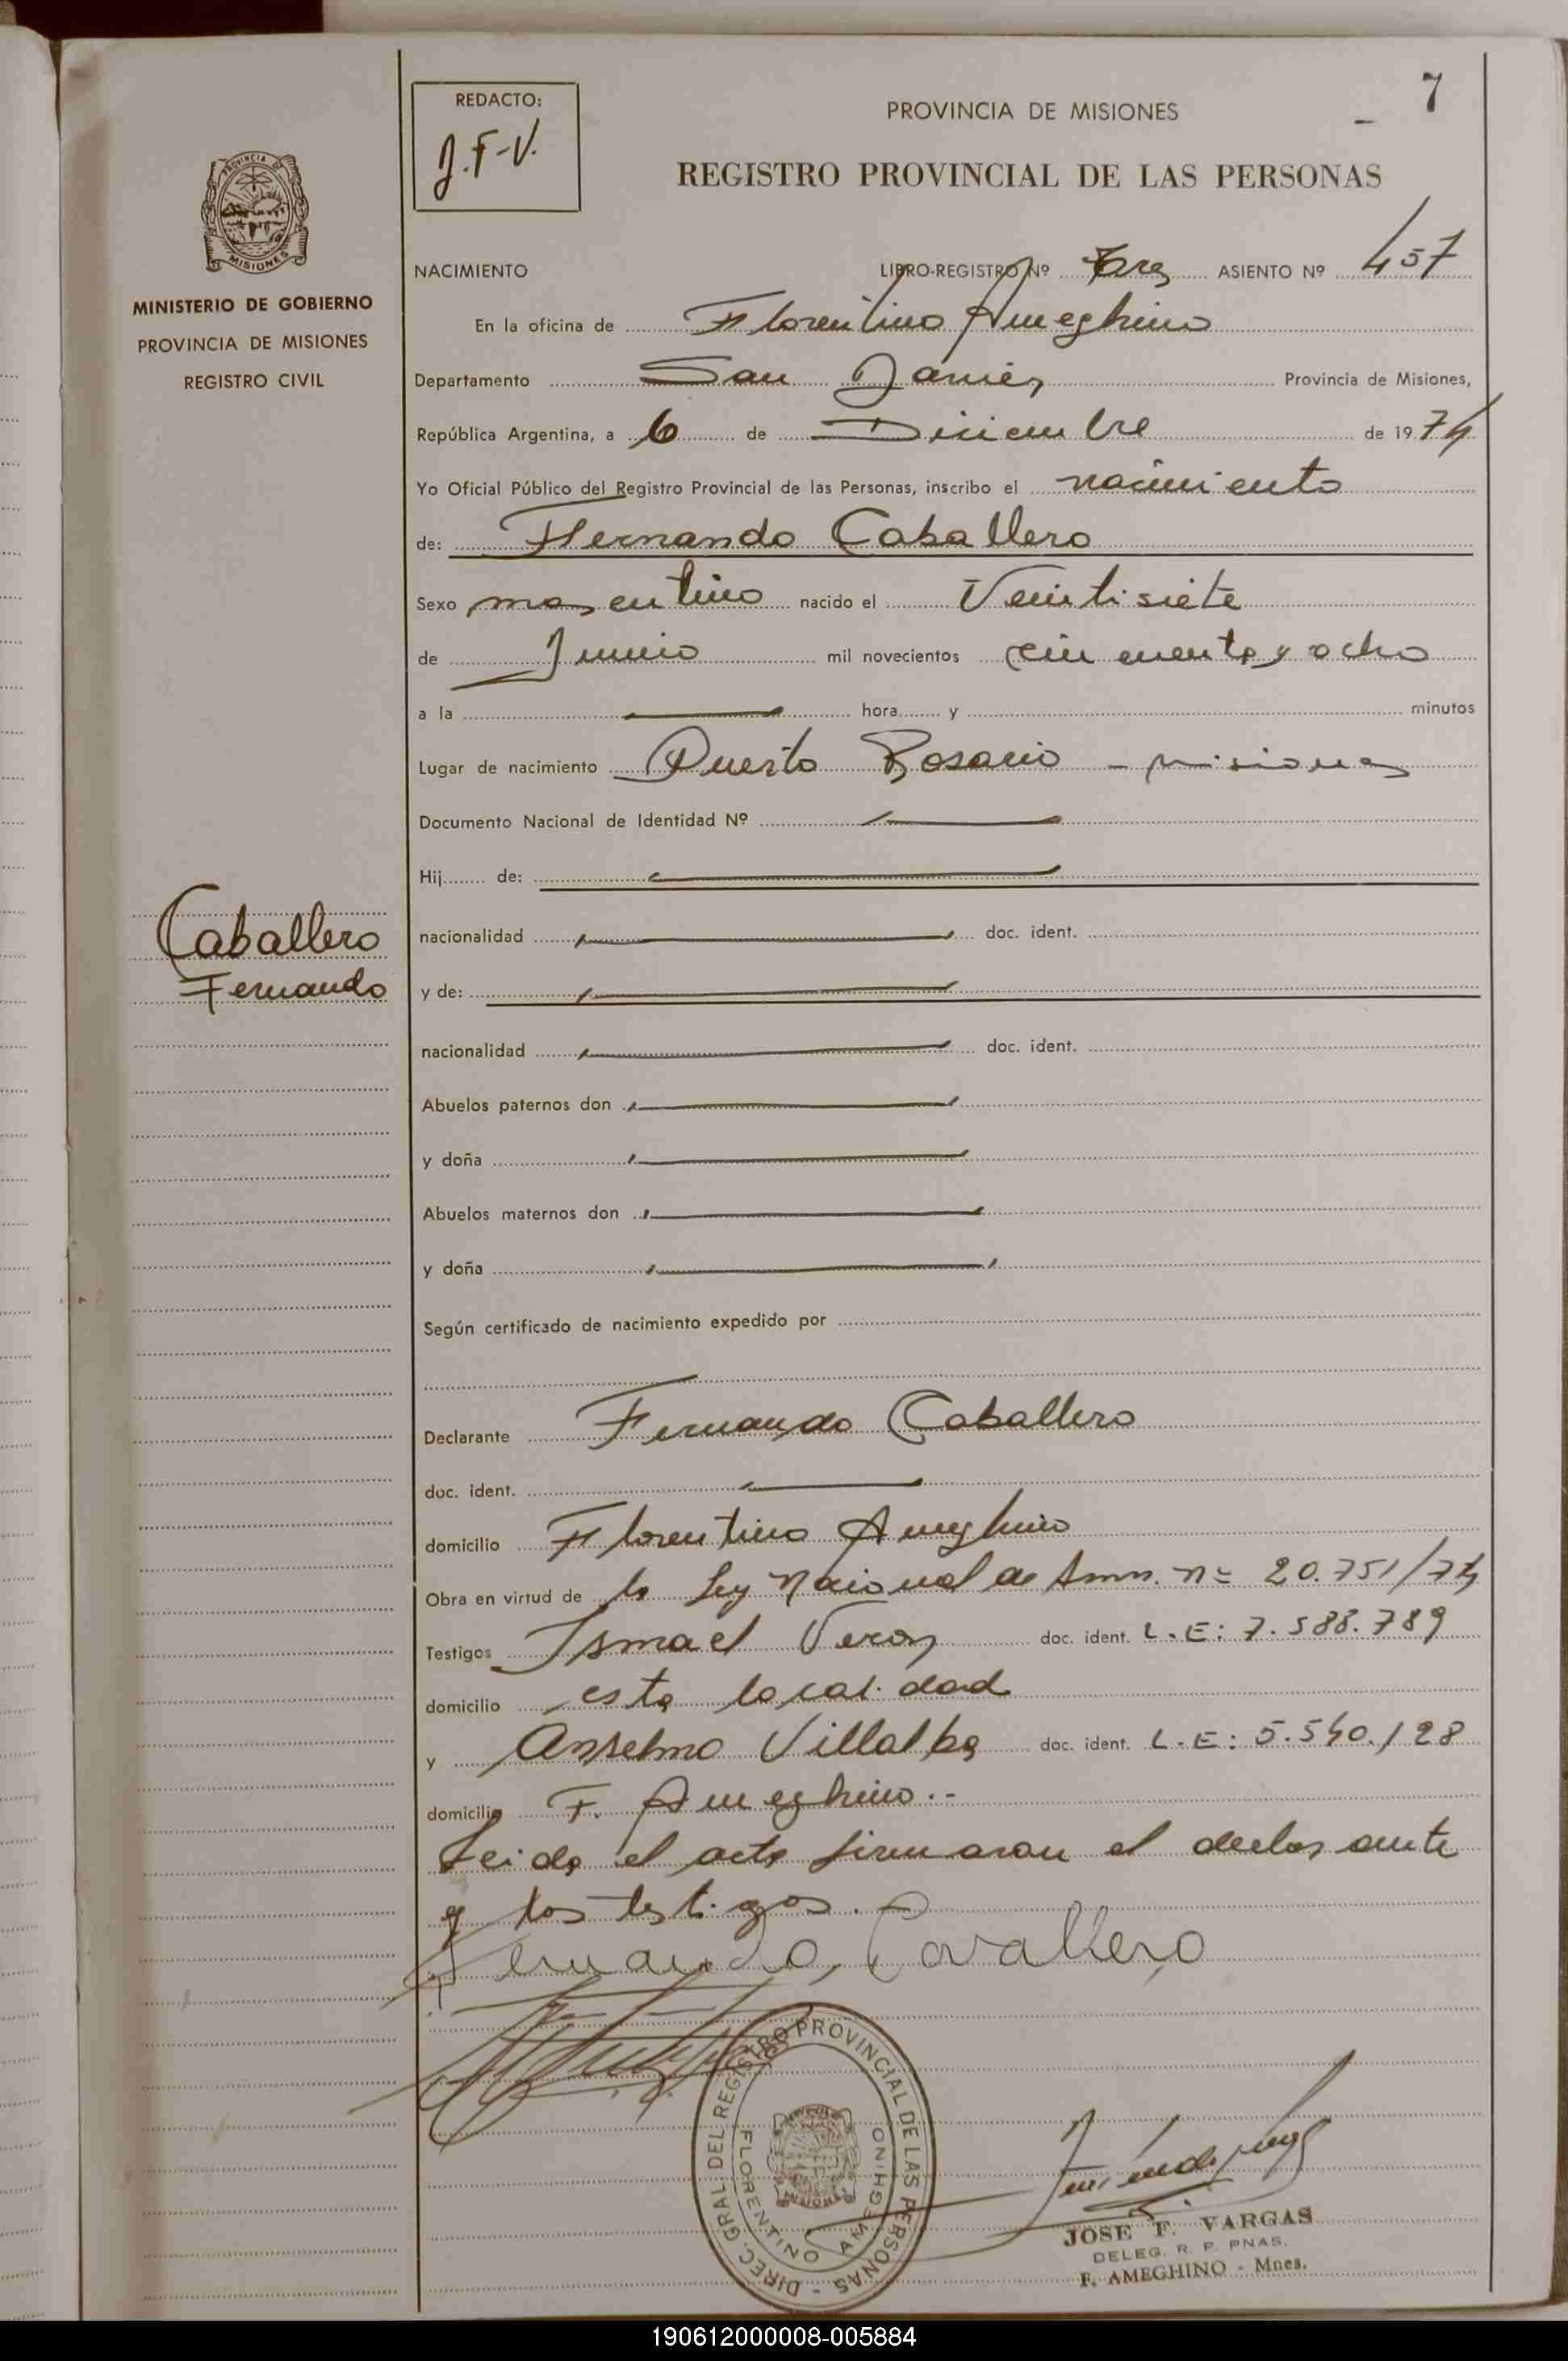 7
REDACTO:
J.F-V.
PROVINCIA DE MISIONES
REGISTRO PROVINCIAL DE LAS PERSONAS
PROVINCIA DE
MISIONES
MINISTERIO DE GOBIERNO
PROVINCIA DE MISIONES
REGISTRO CIVIL
NACIMIENTO LIBRO-REGISTRO Nº Tres ASIENTO Nº 457
En la oficina de Florentino Ameghino
Departamento San Javier Provincia de Misiones,
República Argentina, a 6 de Diciembre de 1974
Yo Oficial Público del Registro Provincial de las Personas, inscribo el nacimiento
de: Fernando Caballero
Sexo masculino nacido el Veintisiete
de Junio mil novecientos cincuenta y ocho
a la hora y minutos
Lugar de nacimiento Puerto Rosario - misiones
Documento Nacional de Identidad Nº
Hij de:
Caballero
Fernando
nacionalidad doc. ident.
y de:
nacionalidad doc. ident.
Abuelos paternos don
y doña
Abuelos maternos don
y doña
Según certificado de nacimiento expedido por
Declarante Fernando Caballero
doc. ident.
domicilio Florentino Ameghino
Obra en virtud de la Ley Nacional de Amn. nº 20.751/74
Testigos Ismael Veron doc. ident. L.E: 7.588.789
domicilio esta localidad
y Anselmo Villalba doc. ident. L.E: 5.540.128
domicilio F. Ameghino.-
Leida el acta firmaron el declarante
y los testigos.-
Fernando, Cavallero
DIREC. GRAL. DEL REGISTRO PROVINCIAL DE LAS PERSONAS -
FLORENTINO AMEGHINO
MISIONES
JOSE F. VARGAS
DELEG. R. P. PNAS.
F. AMEGHINO - Mnes.
190612000008-005884